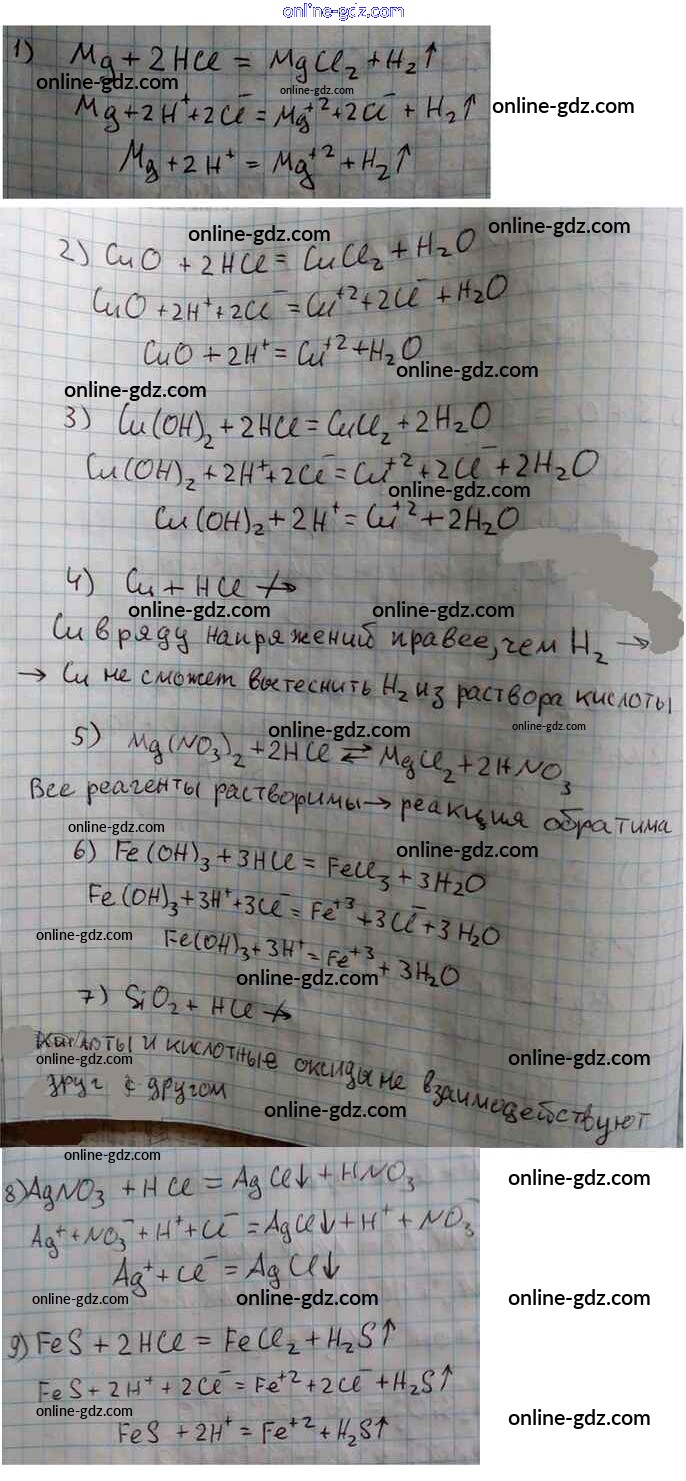 online-gdz.com
1) Mg + 2HCl = MgCl₂ + H₂↑
online-gdz.com
online-gdz.com
Mg + 2H⁺ + 2Cl⁻ = Mg⁺² + 2Cl⁻ + H₂↑
online-gdz.com
Mg + 2H⁺ = Mg⁺² + H₂↑
online-gdz.com
online-gdz.com
2) CuO + 2HCl = CuCl₂ + H₂O
CuO + 2H⁺ + 2Cl⁻ = Cu⁺² + 2Cl⁻ + H₂O
CuO + 2H⁺ = Cu⁺² + H₂O
online-gdz.com
online-gdz.com
3) Cu(OH)₂ + 2HCl = CuCl₂ + 2H₂O
Cu(OH)₂ + 2H⁺ + 2Cl⁻ = Cu⁺² + 2Cl⁻ + 2H₂O
online-gdz.com
Cu(OH)₂ + 2H⁺ = Cu⁺² + 2H₂O
4) Cu + HCl ↛
online-gdz.com
online-gdz.com
Cu в ряду напряжений правее, чем H₂ →
→ Cu не сможет вытеснить H₂ из раствора кислоты
online-gdz.com
online-gdz.com
5) Mg(NO₃)₂ + 2HCl ⇄ MgCl₂ + 2HNO₃
Все реагенты растворимы → реакция обратима
online-gdz.com
online-gdz.com
6) Fe(OH)₃ + 3HCl = FeCl₃ + 3H₂O
Fe(OH)₃ + 3H⁺ + 3Cl⁻ = Fe⁺³ + 3Cl⁻ + 3H₂O
online-gdz.com
Fe(OH)₃ + 3H⁺ = Fe⁺³ + 3H₂O
online-gdz.com
7) SiO₂ + HCl ↛
Кислоты и кислотные оксиды не взаимодействуют
online-gdz.com
online-gdz.com
друг с другом
online-gdz.com
online-gdz.com
online-gdz.com
8) AgNO₃ + HCl = AgCl↓ + HNO₃
Ag⁺ + NO₃⁻ + H⁺ + Cl⁻ = AgCl↓ + H⁺ + NO₃⁻
Ag⁺ + Cl⁻ = AgCl↓
online-gdz.com
online-gdz.com
online-gdz.com
9) FeS + 2HCl = FeCl₂ + H₂S↑
FeS + 2H⁺ + 2Cl⁻ = Fe⁺² + 2Cl⁻ + H₂S↑
online-gdz.com
online-gdz.com
FeS + 2H⁺ = Fe⁺² + H₂S↑